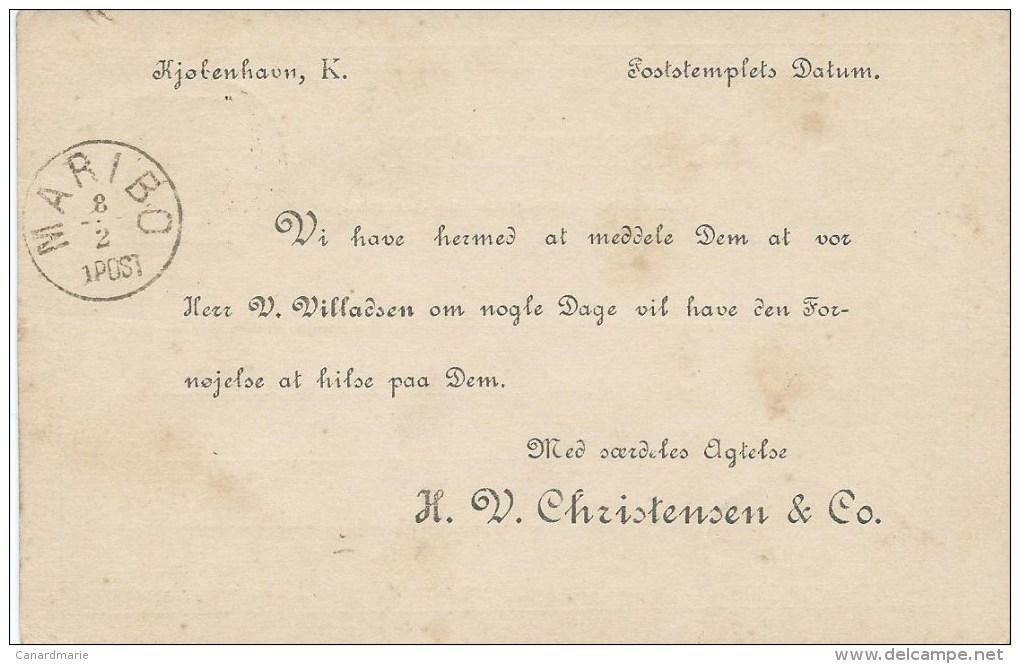 Kjøbenhavn, K.
Poststemplets Datum.
MARIBO
8
2
1POST
Vi have hermed at meddele Dem at vor
Herr V. Villadsen om nogle Dage vil have den For-
nøjelse at hilse paa Dem.
Med særdeles Agtelse
H. V. Christensen & Co.
Canardmarie
www.delcampe.net